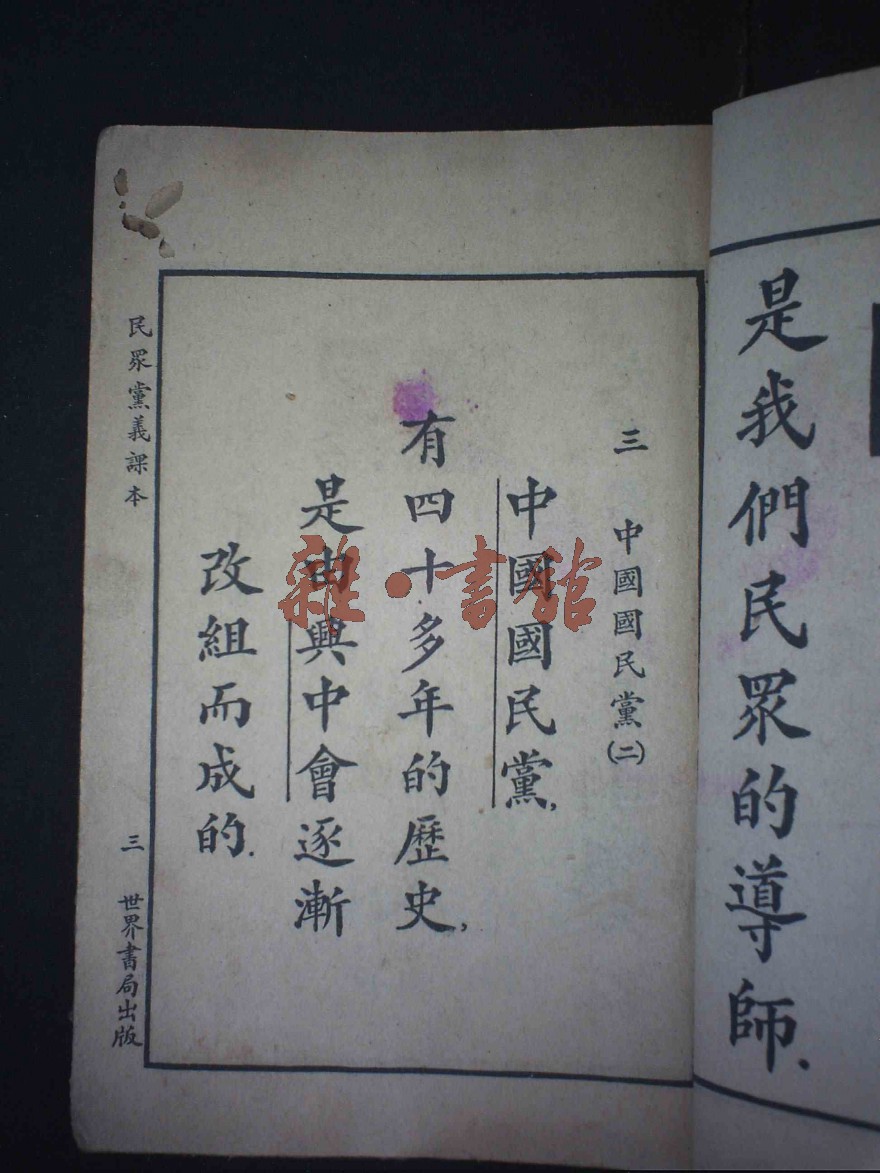 是我們民眾的導師.
三 中國國民黨(二)
中國國民黨,
有四十多年的歷史,
是由興中會逐漸
改組而成的.
民眾黨義課本
三
世界書局出版
雜·書館